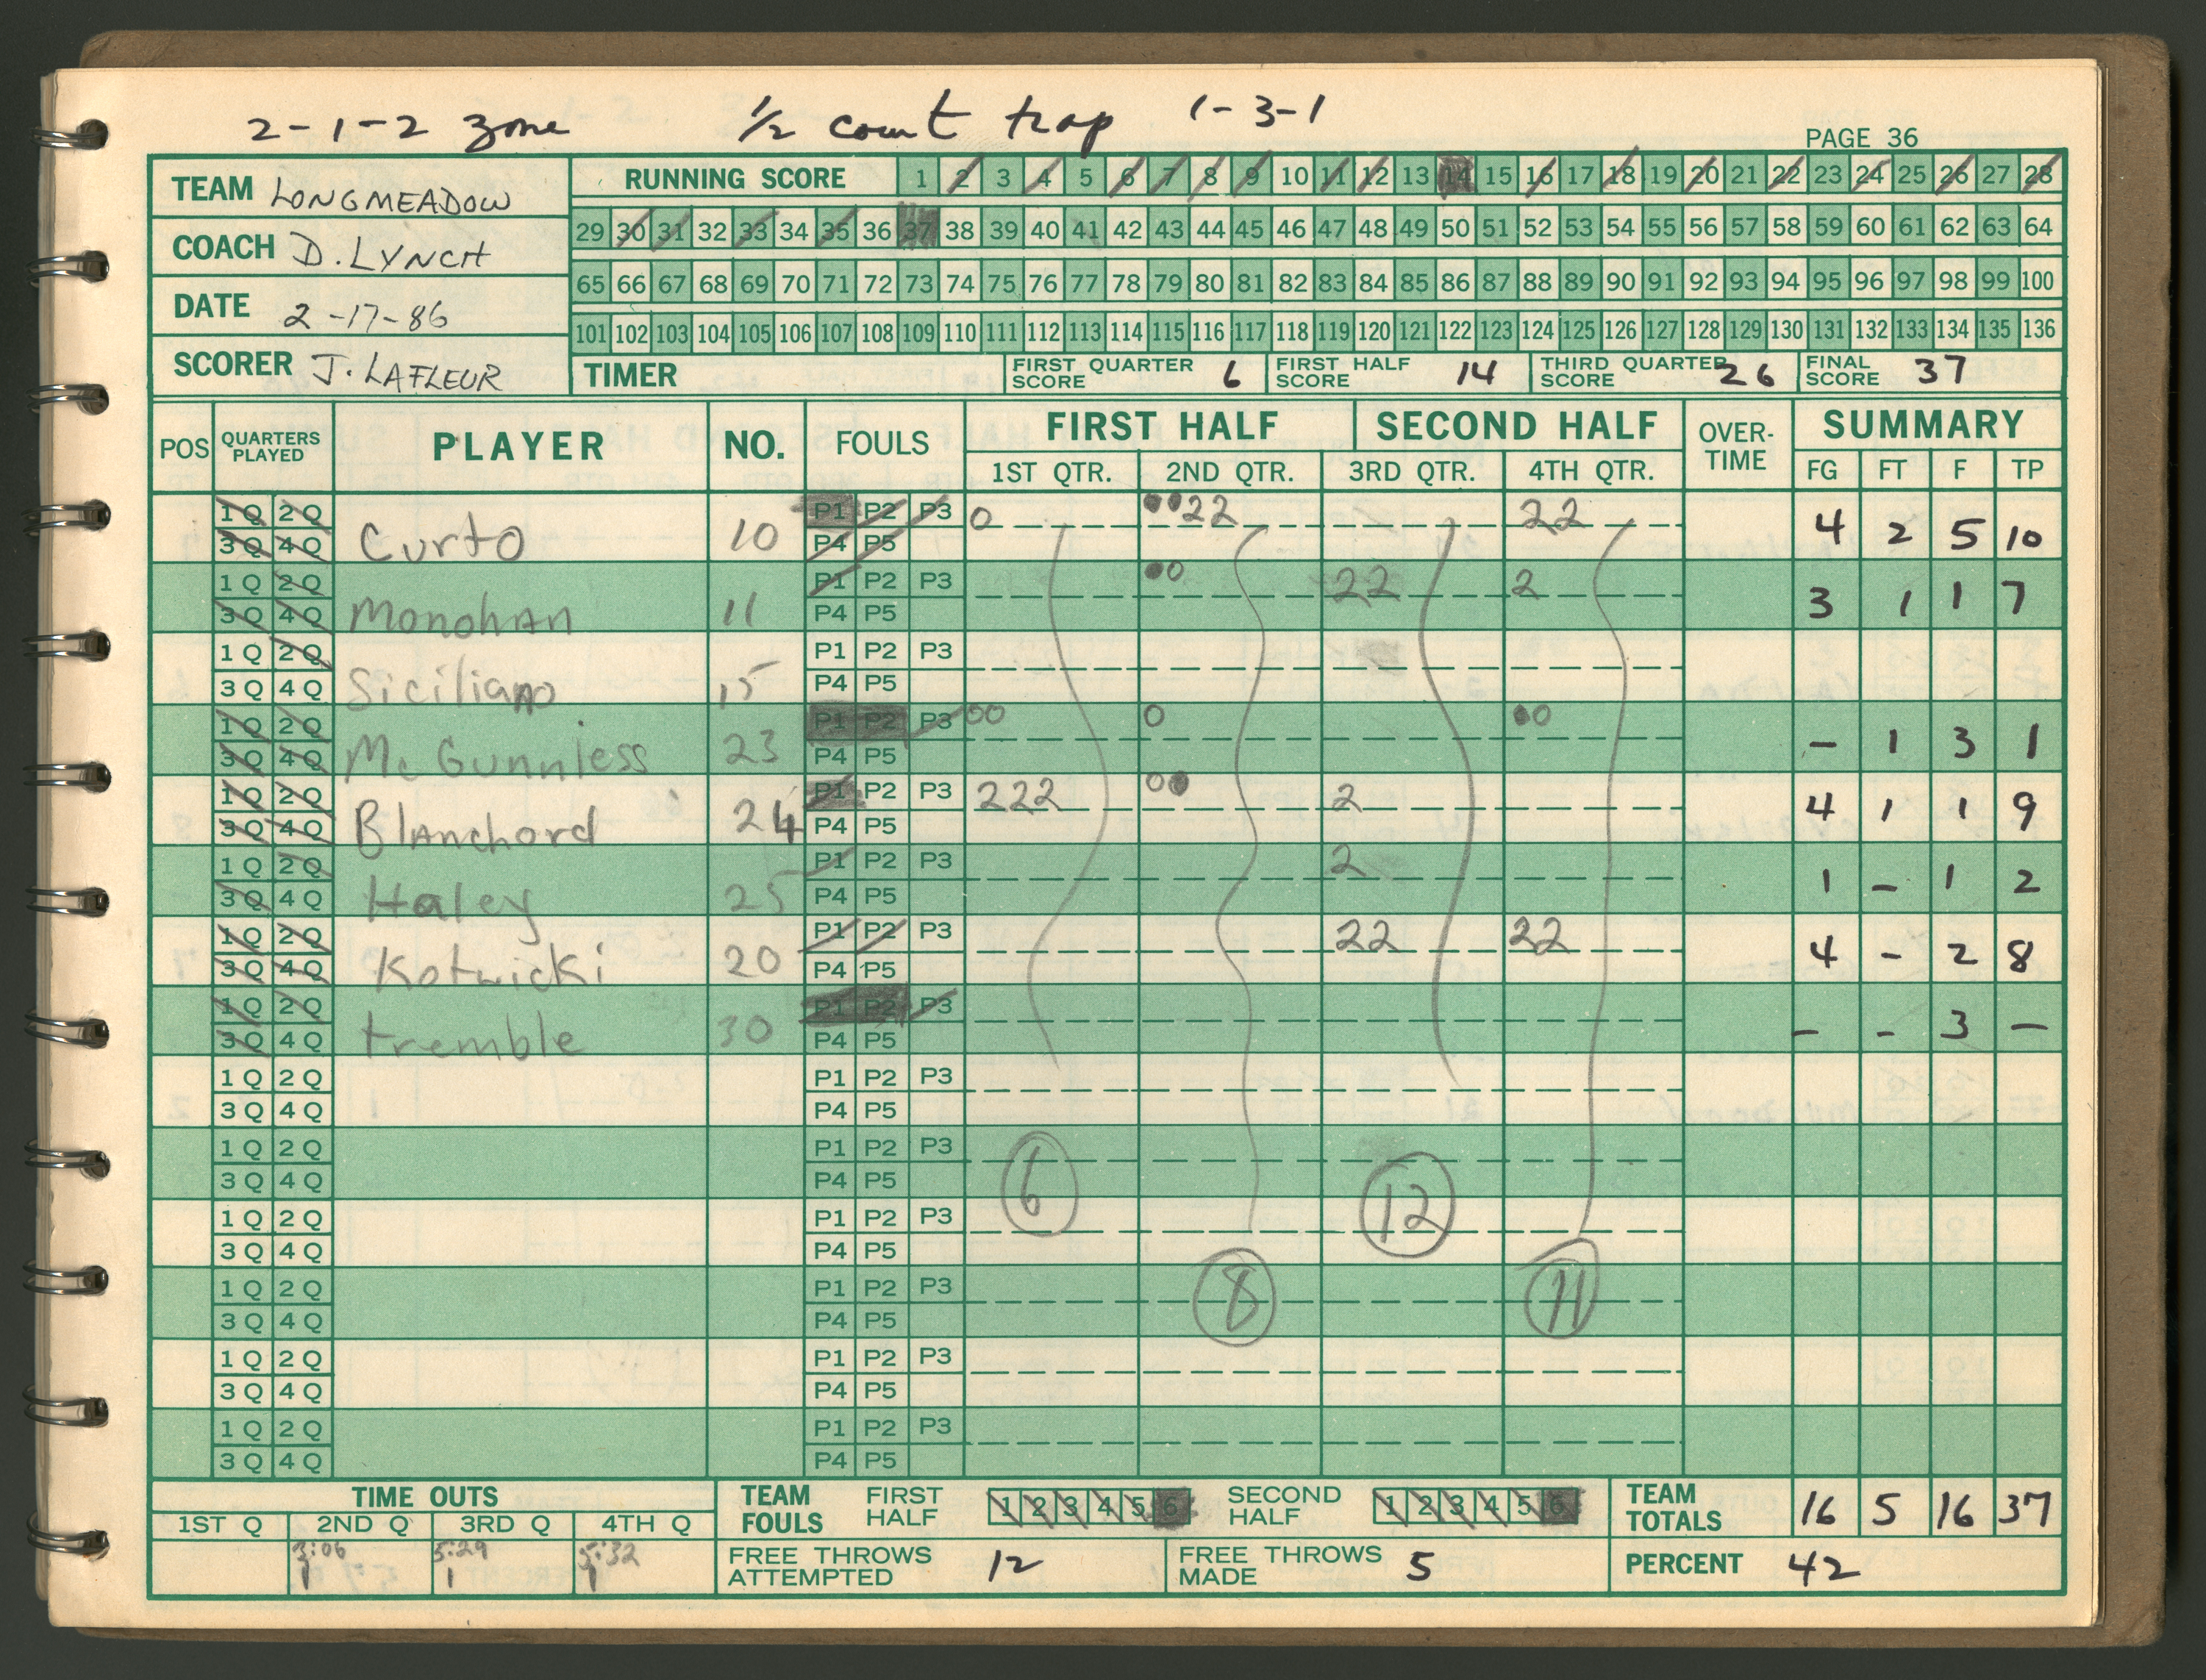 2-1-2 zone ½ count trap 1-3-1
PAGE 36
TEAM LONGMEADOW
COACH D. LYNCH
DATE 2-17-86
SCORER J. LAFLEUR
RUNNING SCORE 1 2 3 4 5 6 7 8 9 10 11 12 13 14 15 16 17 18 19 20 21 22 23 24 25 26 27 28
29 30 31 32 33 34 35 36 37 38 39 40 41 42 43 44 45 46 47 48 49 50 51 52 53 54 55 56 57 58 59 60 61 62 63 64
65 66 67 68 69 70 71 72 73 74 75 76 77 78 79 80 81 82 83 84 85 86 87 88 89 90 91 92 93 94 95 96 97 98 99 100
101 102 103 104 105 106 107 108 109 110 111 112 113 114 115 116 117 118 119 120 121 122 123 124 125 126 127 128 129 130 131 132 133 134 135 136
TIMER FIRST QUARTER SCORE 6 FIRST HALF SCORE 14 THIRD QUARTER SCORE 26 FINAL SCORE 37
POS QUARTERS PLAYED PLAYER NO. FOULS FIRST HALF SECOND HALF OVER-TIME SUMMARY
1ST QTR. 2ND QTR. 3RD QTR. 4TH QTR. FG FT F TP
1Q 2Q P1 P2 P3 0 ●●22 22
3Q 4Q Curto 10 P4 P5 4 2 5 10
1Q 2Q P1 P2 P3 ●0 22 2
3Q 4Q Monohan 11 P4 P5 3 1 1 7
1Q 2Q P1 P2 P3
3Q 4Q Siciliano 15 P4 P5
1Q 2Q P1 P2 P3 00 0 ●0
3Q 4Q Mc Gunnless 23 P4 P5 – 1 3 1
1Q 2Q P1 P2 P3 222 0● 2
3Q 4Q Blanchord 24 P4 P5 4 1 1 9
1Q 2Q P1 P2 P3 2
3Q 4Q Haley 25 P4 P5 1 – 1 2
1Q 2Q P1 P2 P3 22 22
3Q 4Q Kotwicki 20 P4 P5 4 - 2 8
1Q 2Q P1 P2 P3
3Q 4Q tremble 30 P4 P5 – - 3 –
1Q 2Q P1 P2 P3
3Q 4Q P4 P5
1Q 2Q P1 P2 P3
3Q 4Q P4 P5 6 12
1Q 2Q P1 P2 P3
3Q 4Q P4 P5
1Q 2Q P1 P2 P3 8 11
3Q 4Q P4 P5
1Q 2Q P1 P2 P3
3Q 4Q P4 P5
1Q 2Q P1 P2 P3
3Q 4Q P4 P5
TIME OUTS
1ST Q 2ND Q 3RD Q 4TH Q
3:06 5:29 5:32
1 1 1
TEAM FOULS FIRST HALF 1 2 3 4 5 6 SECOND HALF 1 2 3 4 5 6
TEAM TOTALS 16 5 16 37
FREE THROWS ATTEMPTED 12 FREE THROWS MADE 5 PERCENT 42